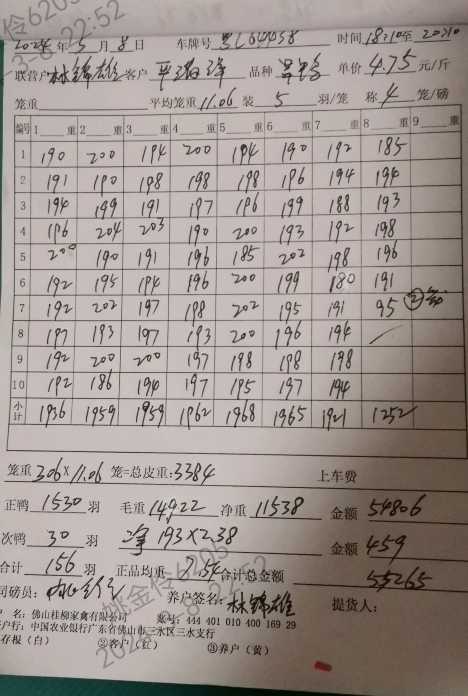 2024年3月8日 车牌号 黑L64458 时间 18:10至20:10
联营户 林锦雄 客户 品种 单价 4.75 元/斤
笼重 平均笼重 11.06 装 5 羽/笼 称 4 笼/磅
编号 1 重 2 重 3 重 4 重 5 重 6 重 7 重 8 重 9 重
1 190 200 194 200 194 190 192 185
2 191 190 198 198 198 196 194 194
3 194 199 191 197 196 199 188 193
4 196 204 203 190 200 193 192 198
5 200 190 191 196 185 202 198 196
6 192 195 194 196 200 199 180 191
7 192 202 197 198 202 195 191 95 ②
8 197 193 197 193 200 196 194
9 192 200 200 197 198 198 198
10 192 186 194 197 195 197 194
小计 1936 1959 1959 1962 1968 1965 1921 1252
笼重 306×11.06 笼=总皮重: 3384 上车费
正鸭 1530 羽 毛重 14922 净重 11538 金额 54806
次鸭 30 羽 净 193×2.38 金额 459
合计 156 羽 正品均重 7.54 合计总金额 55265
司磅员: 养户签名: 林锦雄 提货人:
户 名: 佛山桂柳家禽有限公司 账号: 444 401 010 400 169 29
户行: 中国农业银行广东省佛山市三水区三水支行
存根(白) ②客户(红) ③养户(黄)